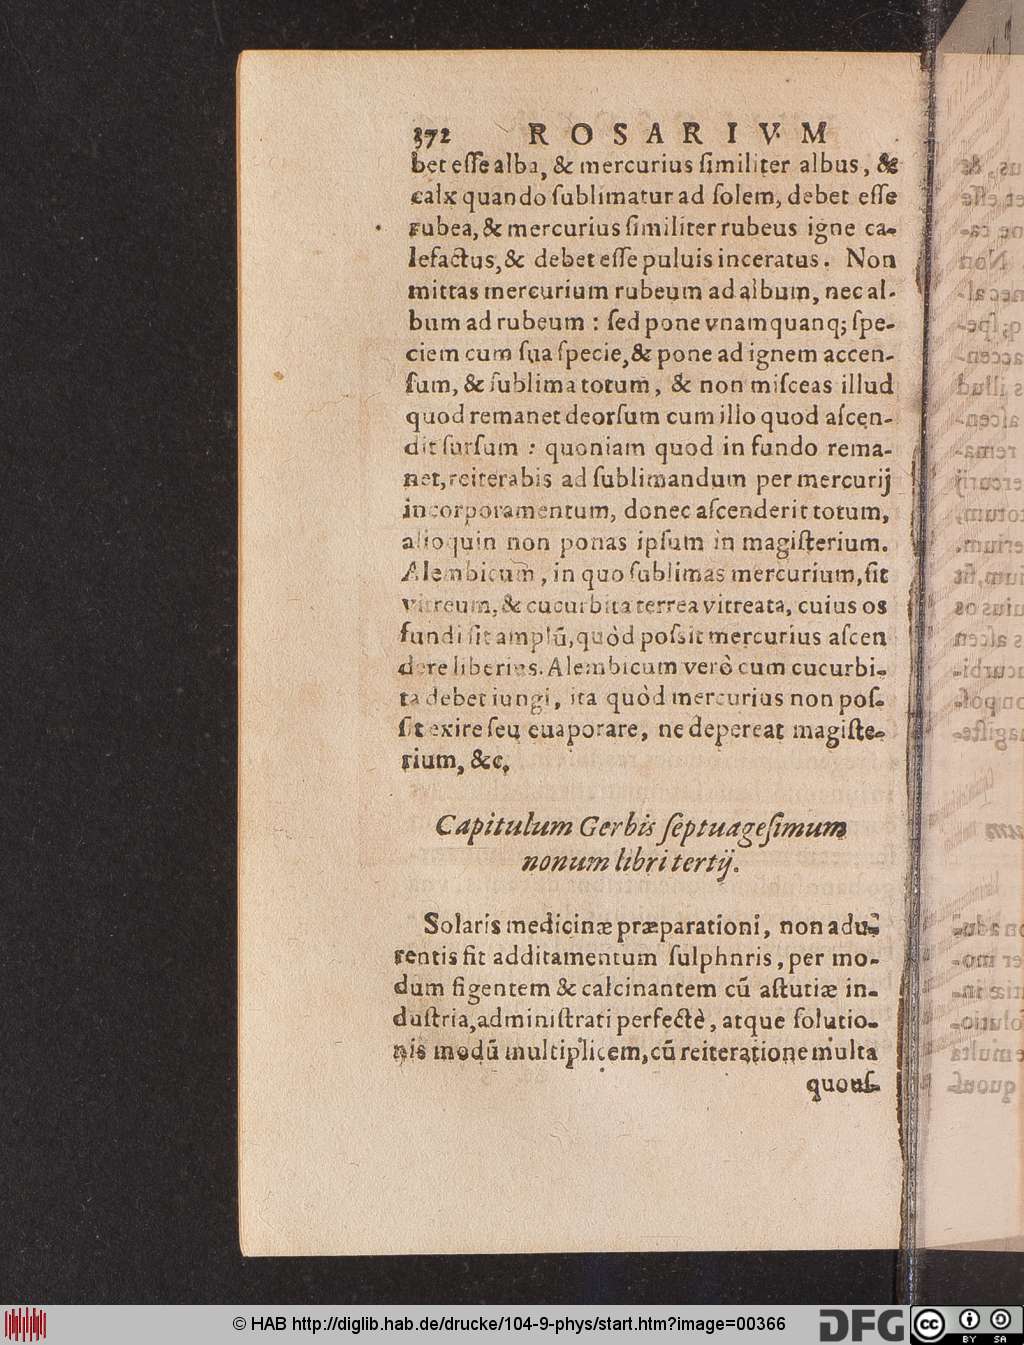 372 ROSARIVM
bet eſſe alba, & mercurius ſimiliter albus, &
calx quando ſublimatur ad ſolem, debet eſſe
rubea, & mercurius ſimiliter rubeus igne ca-
lefactus, & debet eſſe puluis inceratus. Non
mittas mercurium rubeum ad album, nec al-
bum ad rubeum : ſed pone vnamquanq; ſpe-
ciem cum ſua ſpecie, & pone ad ignem accen-
ſum, & ſublima totum, & non miſceas illud
quod remanet deorſum cum illo quod aſcen-
dit ſurſum : quoniam quod in fundo rema-
net, reiterabis ad ſublimandum per mercurij
incorporamentum, donec aſcenderit totum,
alioquin non ponas ipſum in magiſterium.
Alembicum, in quo ſublimas mercurium, ſit
vitreum, & cucurbita terrea vitreata, cuius os
fundi ſit amplū, quòd poſsit mercurius aſcen
dere liberius. Alembicum verò cum cucurbi-
ta debet iungi, ita quòd mercurius non poſ-
ſit exire ſeu euaporare, ne depereat magiſte-
rium, &c,
Capitulum Gerbis ſeptuageſimum
nonum libri tertij.
Solaris medicinæ præparationi, non adu-
rentis fit additamentum ſulphnris, per mo-
dum figentem & calcinantem cū aſtutiæ in-
duſtria, adminiſtrati perfectè, atque ſolutio-
nis modū multiplicem, cū reiteratione multa
quouſ-
© HAB http://diglib.hab.de/drucke/104-9-phys/start.htm?image=00366
DFG
cc BY SA